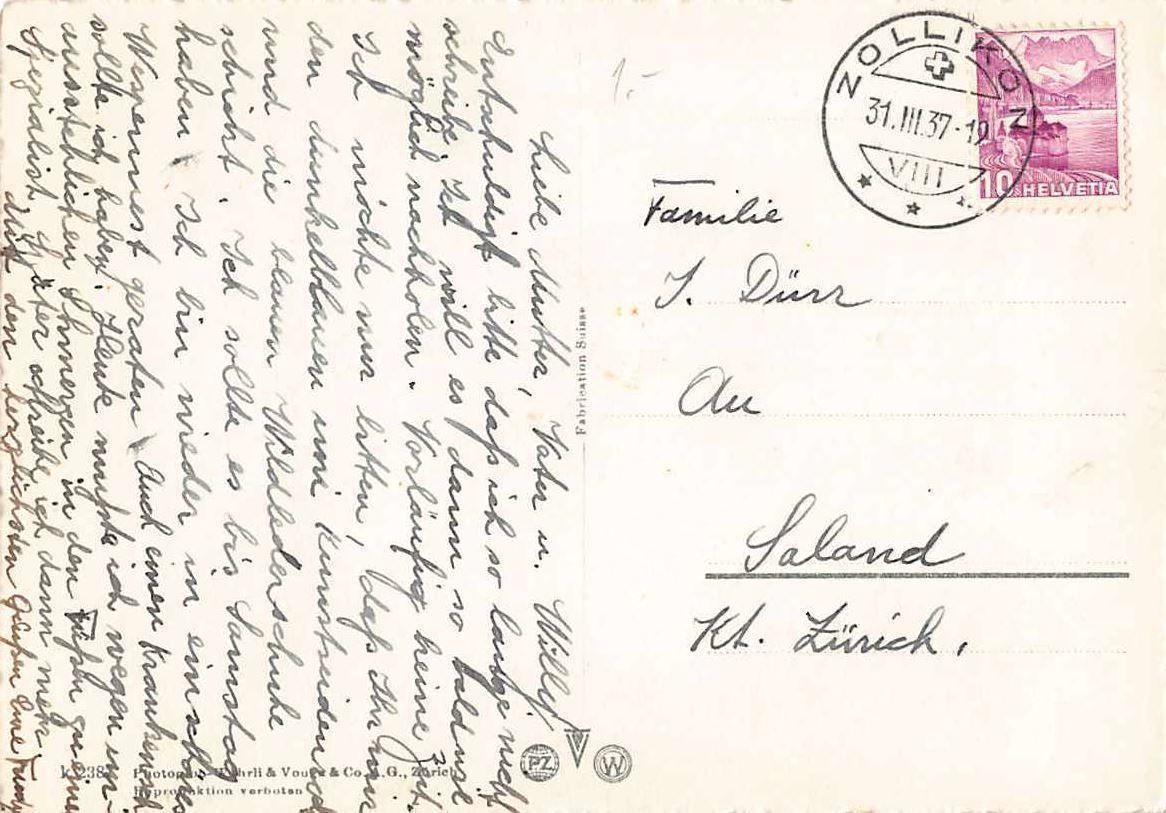 Liebe Mutter, Vater u. Willy!
Entschuldigt bitte dass ich so lange nicht
schreibe. Ich will es dann so bald wie
möglich nachholen. Vorläufig keine Zeit.
Ich möchte nur bitten, dass Ihr mir
den dunkelblauen
und die blauen Wildlederschuhe
schickt. Ich sollte es bis Samstag
haben. Ich bin wieder in ein
Wespennest geraten. Auch einen
sollte ich haben. Heute musste ich wegen un-
ausstehlichen Schmerzen in den Füssen zu einem
Spezialist. Später schreibe ich dann mehr
Mit den herzlichsten Grüssen Eure Trudy
1.-
ZOLLIKON
31.III.37-19
VIII
10 HELVETIA
Familie
J. Dürr
Au
Saland
Kt. Zürich.
Fabrication Suisse
Photogr. Wehrli & Vouga & Co. A.G., Zürich
Reproduktion verboten
PZ
W